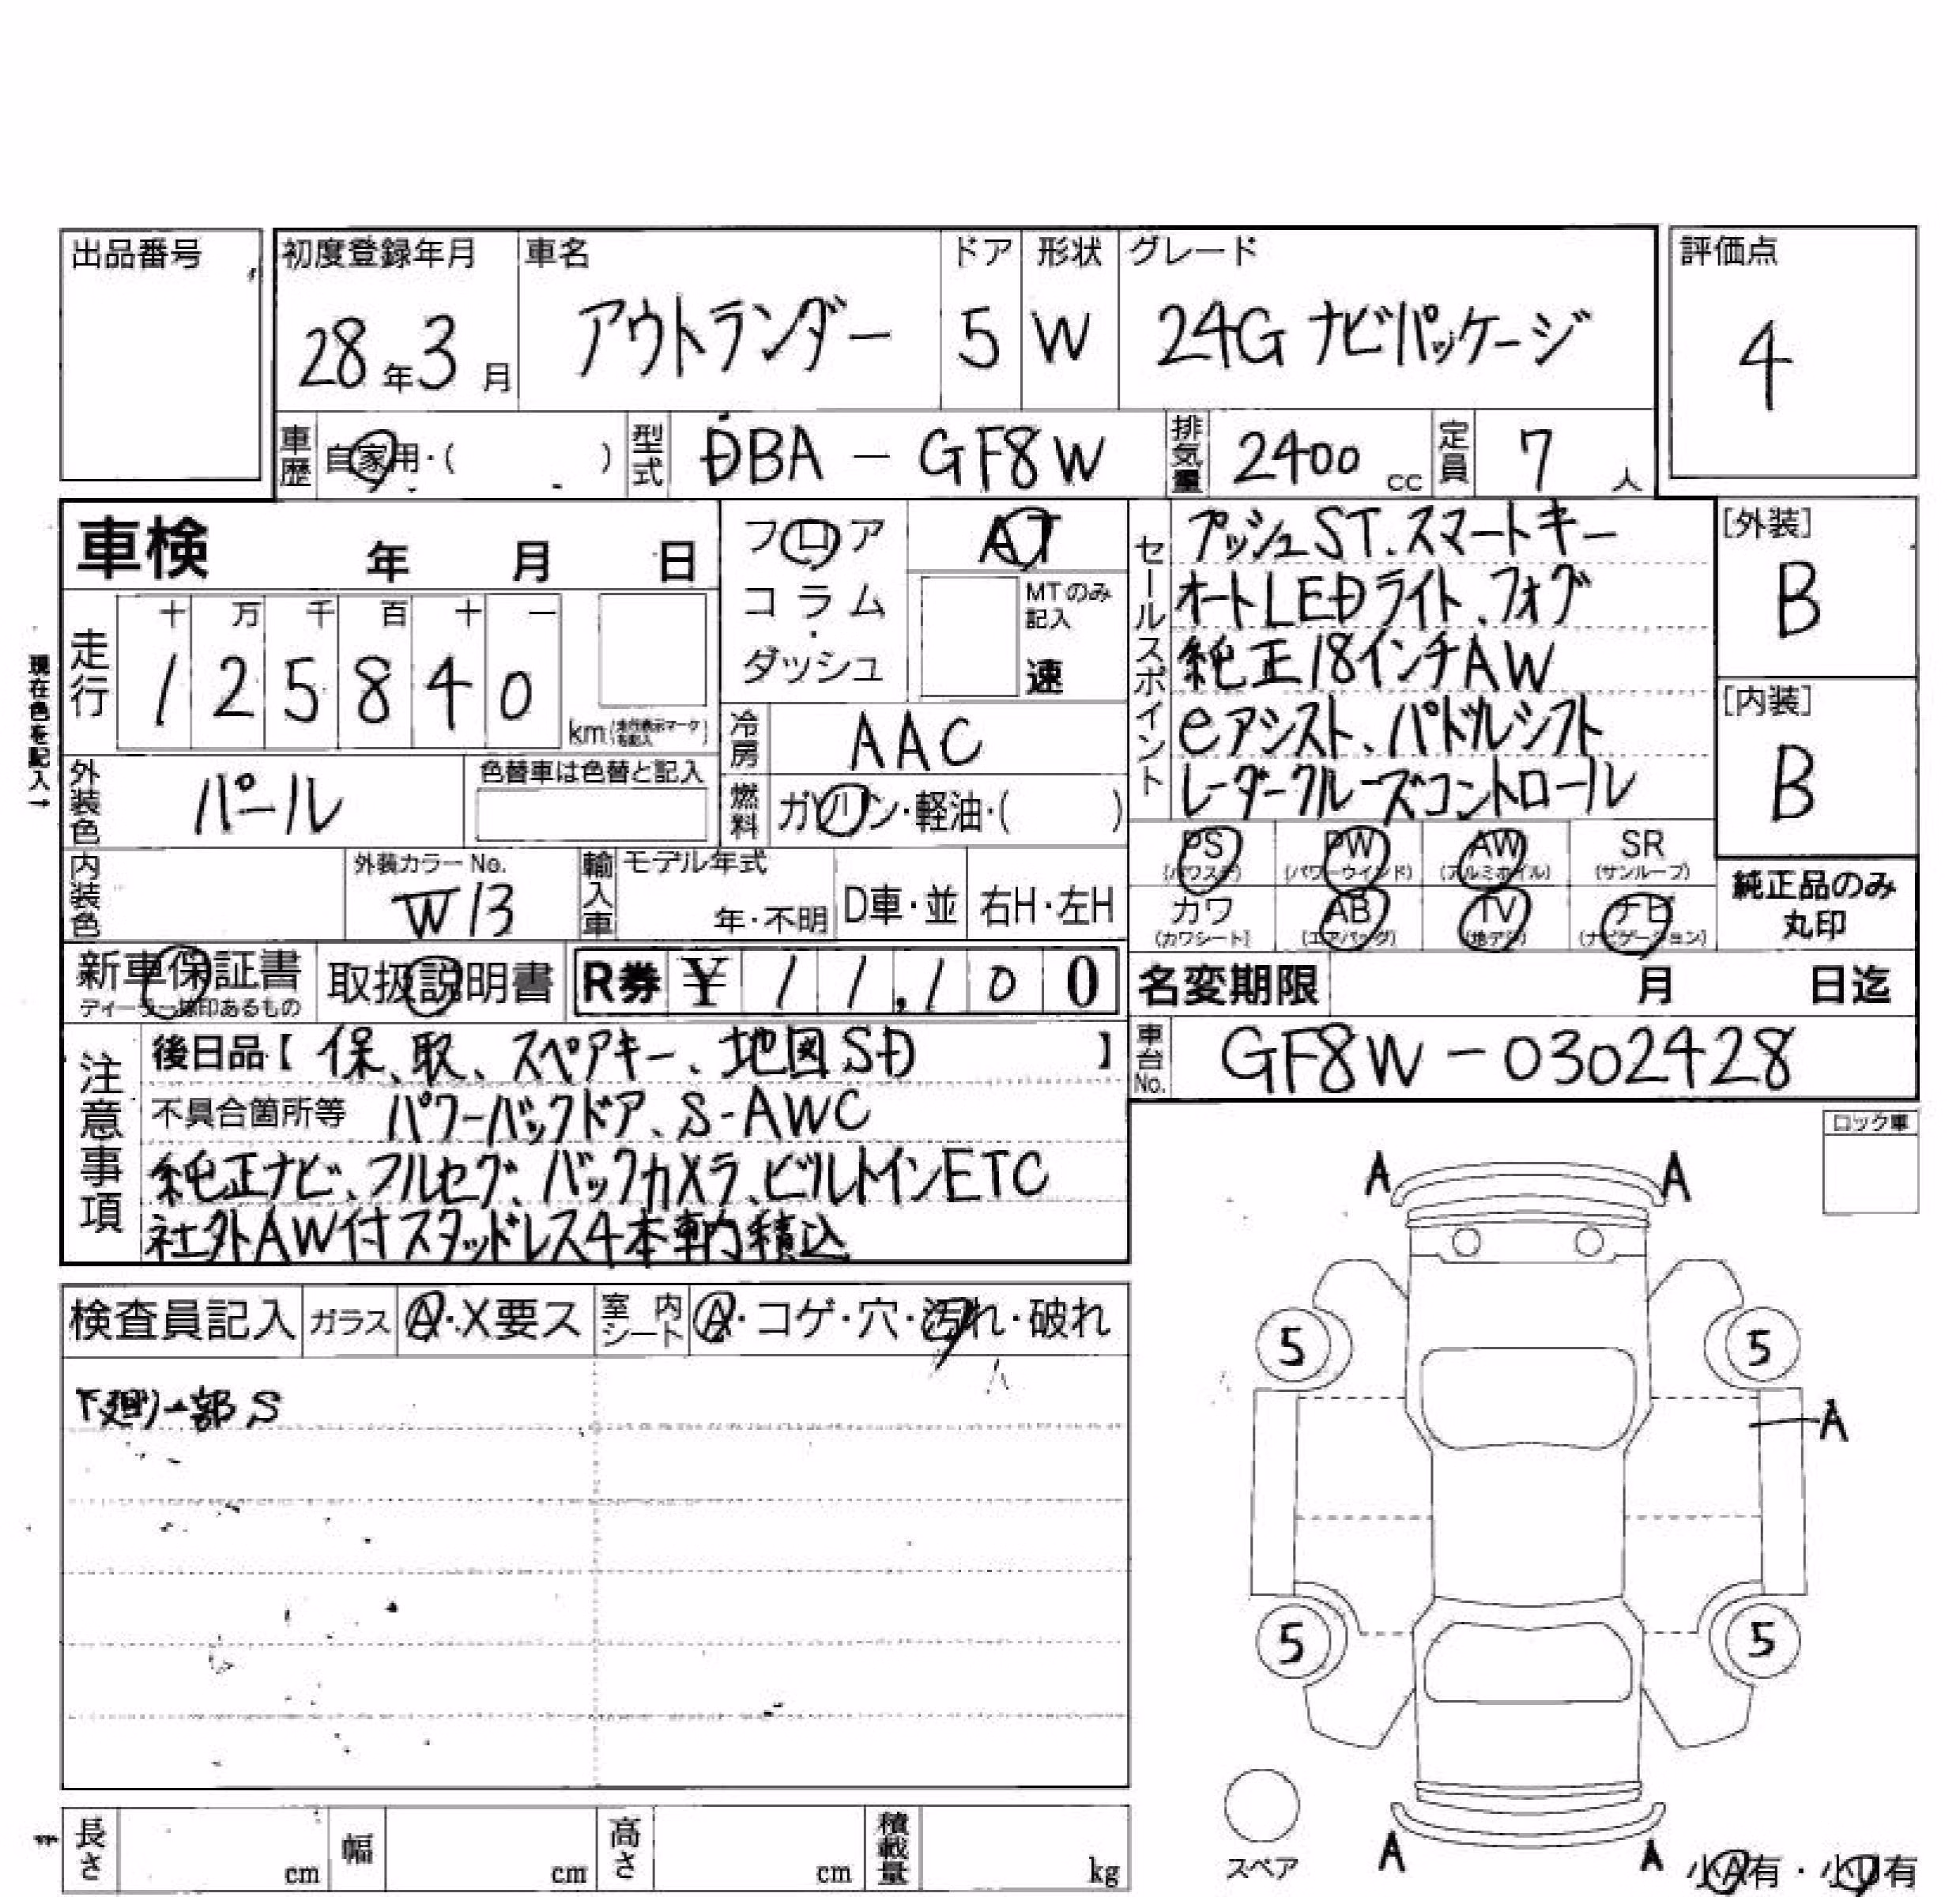 出品番号
初度登録年月 車名 ドア 形状 グレード 評価点
28年3月 アウトランダー 5 W 24G ナビパッケージ 4
車歴 自家用・( ) 型式 DBA - GF8W 排気量 2400 cc 定員 7 人
車検 年 月 日
フロア AT
コラム・ MTのみ記入
ダッシュ 速
現在色を記入→
走行 十 万 千 百 十 一
1 2 5 8 4 0 km(走行表示マークを記入)
冷房 AAC
外装色 パール 色替車は色替と記入
燃料 ガソリン・軽油・( )
内装色 外装カラーNo. W13
輸入車 モデル年式 年・不明 D車・並 右H・左H
セールスポイント
プッシュST.スマートキー
オートLEDライト、フォグ
純正18インチAW
eアシスト、パドルシフト
レーダークルーズコントロール
[外装] B
[内装] B
PS (パワステ) PW (パワーウインド) AW (アルミホイル) SR (サンルーフ)
カワ (カワシート) AB (エアバッグ) TV (地デジ) ナビ (ナビゲーション)
純正品のみ丸印
新車保証書 取扱説明書 R券 ¥ 1 1 , 1 0 0
ディーラー捺印あるもの
名変期限 月 日迄
車台No. GF8W - 0302428
注意事項
後日品【 保、取、スペアキー、地図SD 】
不具合箇所等 パワーバックドア、S-AWC
純正ナビ、フルセグ、バックカメラ、ビルトインETC
社外AW付スタッドレス4本車内積込
ロック車
検査員記入 ガラス A・X要ス 室内シート A・コゲ・穴・汚れ・破れ
下廻り一部S
A A
5 5
A
5 5
スペア
A A
小A有・小U有
長さ cm 幅 cm 高さ cm 積載量 kg